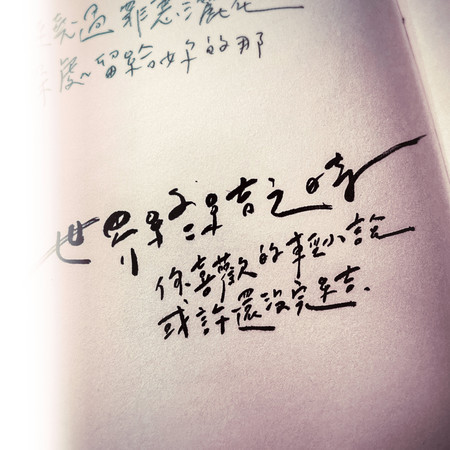 過罪惡
處留給妳的那
世界終結之時
你喜歡的輕小說
或許還沒完結.